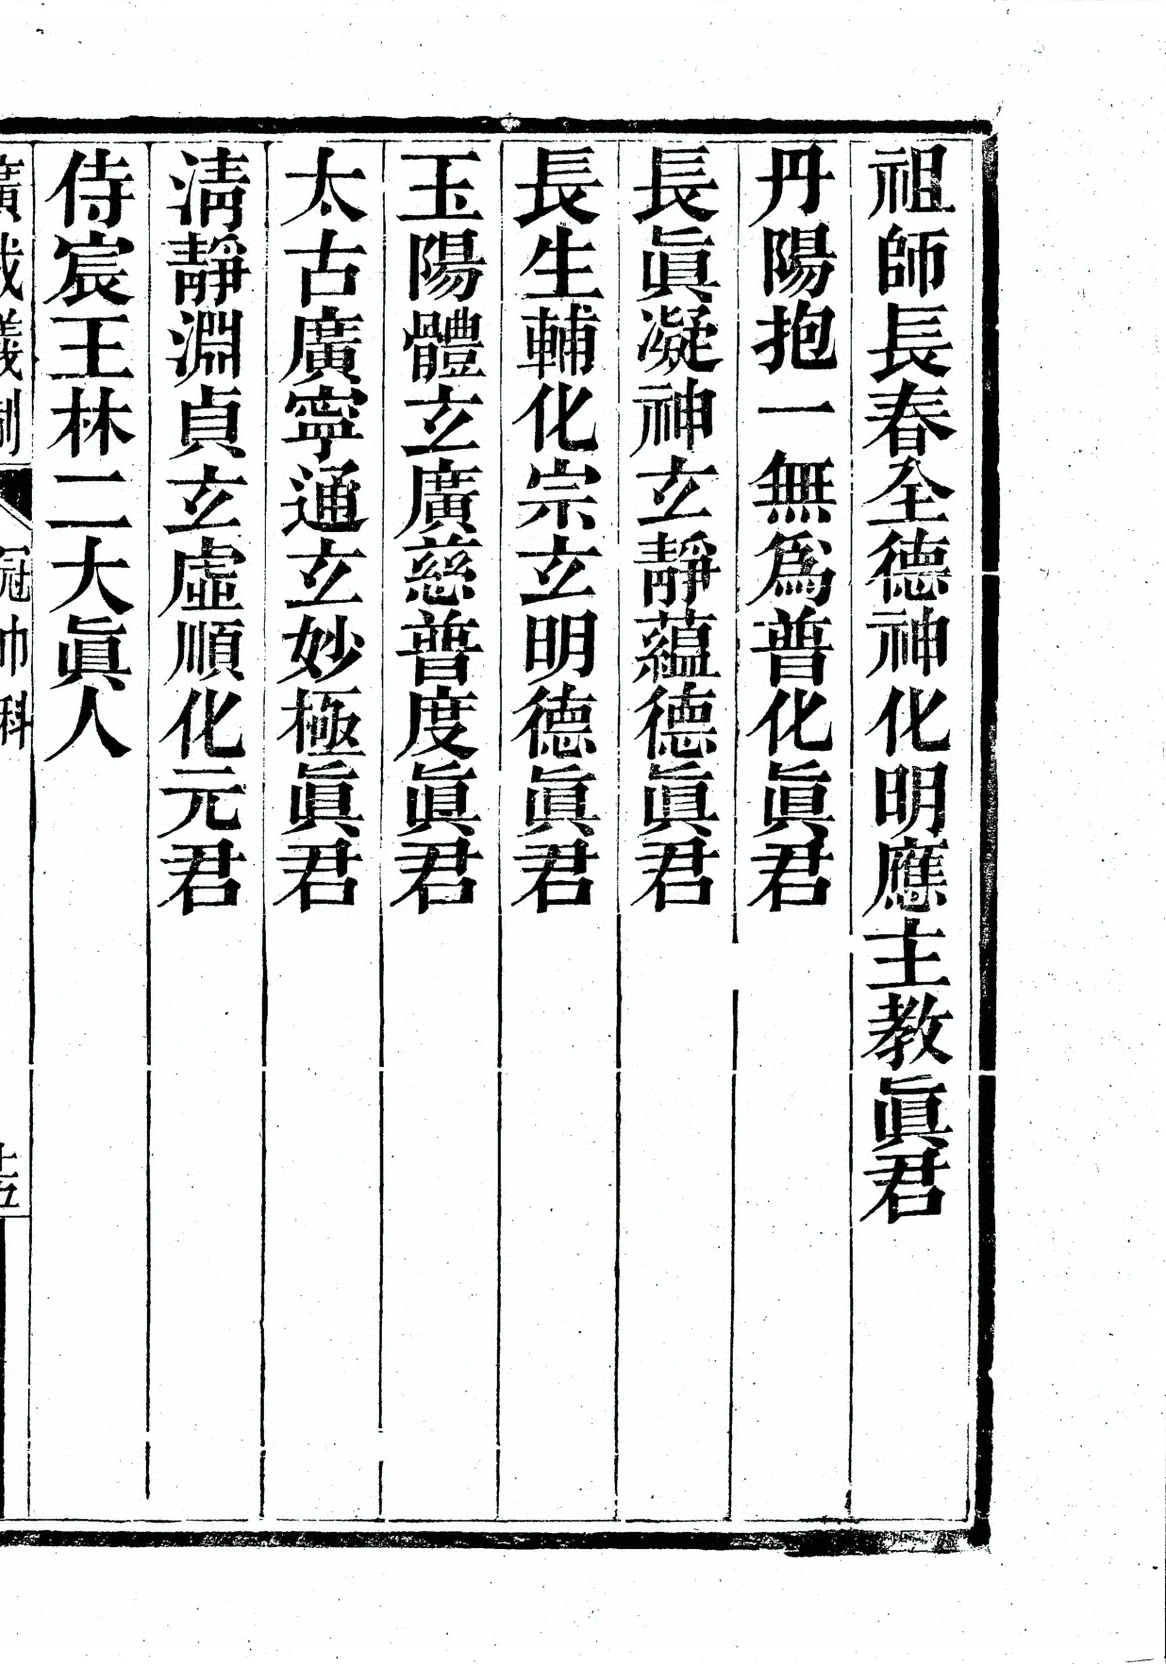 祖師長春全德神化明應主教眞君
丹陽抱一無爲普化眞君
長眞凝神玄靜蘊德眞君
長生輔化宗玄明德眞君
玉陽體玄廣慈普度眞君
太古廣寧通玄妙極眞君
淸靜淵貞玄虛順化元君
侍宸王林二大眞人
廣成儀制 冠巾科 十五